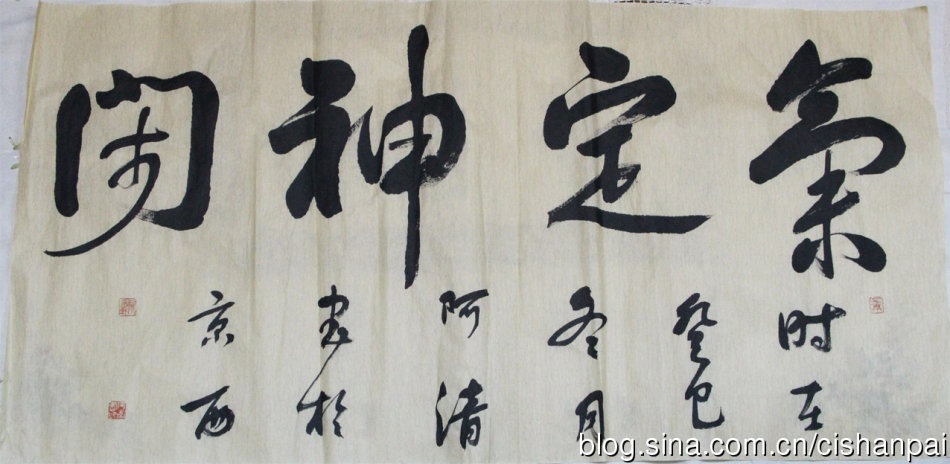 氣定神閑
时在
癸巳
冬月
阿清
書於
京西
blog.sina.com.cn/cishanpai